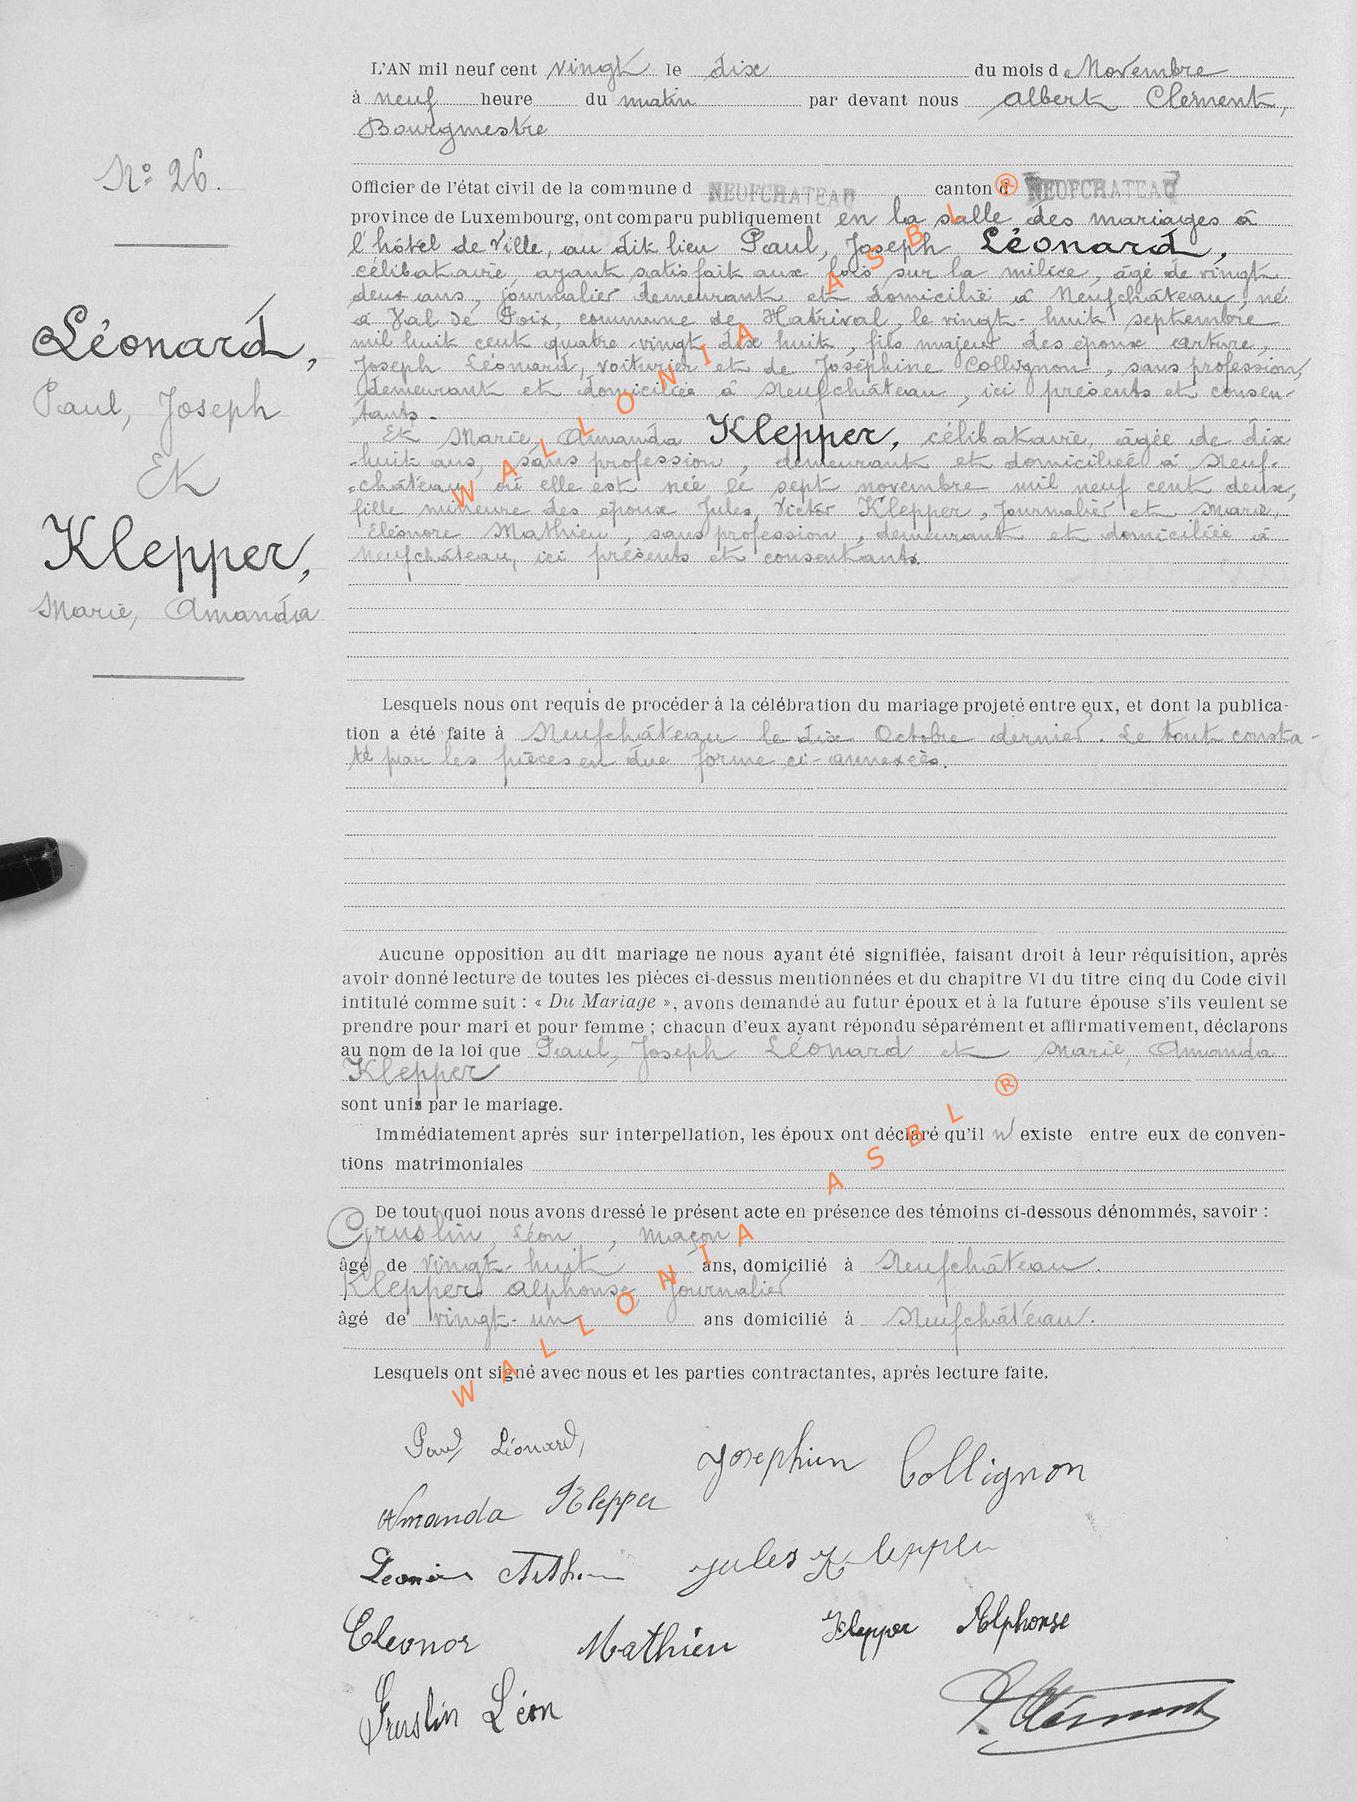 L'AN mil neuf cent vingt le dix du mois de Novembre
à neuf heure du matin par devant nous Albert Clément,
Bourgmestre
N° 26.
Officier de l'état civil de la commune d NEUFCHATEAU canton d NEUFCHATEAU
province de Luxembourg, ont comparu publiquement en la salle des mariages à
l'hôtel de Ville, au dit lieu Paul, Joseph Léonard,
célibataire ayant satisfait aux lois sur la milice, âgé de vingt
deux ans, journalier demeurant et domicilié à Neufchâteau, né
à Val de Poix, commune de Hatrival, le vingt-huit septembre
mil huit cent quatre-vingt dix huit, fils majeur des époux Arthur,
Joseph Léonard, voiturier et de Joséphine Collignon, sans profession,
demeurant et domiciliés à Neufchâteau, ici présents et consen-
tants.
Et Marie, Amanda Klepper, célibataire, âgée de dix
-huit ans, sans profession, demeurant et domiciliée à Neuf-
-château où elle est née le sept novembre mil neuf cent deux,
fille mineure des époux Jules, Victor Klepper, journalier et Marie,
Eléonore Mathieu, sans profession, demeurant et domiciliés à
Neufchâteau, ici présents et consentants.
Léonard,
Paul, Joseph
Et
Klepper,
Marie, Amanda
Lesquels nous ont requis de procéder à la célébration du mariage projeté entre eux, et dont la publica-
tion a été faite à Neufchâteau le dix Octobre dernier. Le tout consta-
té par les pièces en due forme ci-annexées.
Aucune opposition au dit mariage ne nous ayant été signifiée, faisant droit à leur réquisition, après
avoir donné lecture de toutes les pièces ci-dessus mentionnées et du chapitre VI du titre cinq du Code civil
intitulé comme suit : « Du Mariage », avons demandé au futur époux et à la future épouse s'ils veulent se
prendre pour mari et pour femme ; chacun d'eux ayant répondu séparément et affirmativement, déclarons
au nom de la loi que Paul, Joseph Léonard et Marie, Amanda
Klepper
sont unis par le mariage.
Immédiatement après sur interpellation, les époux ont déclaré qu'il n'existe entre eux de conven-
tions matrimoniales
De tout quoi nous avons dressé le présent acte en présence des témoins ci-dessous dénommés, savoir :
Gruslin, Léon, maçon
âgé de vingt-huit ans, domicilié à Neufchâteau.
Klepper Alphonse journalier
âgé de vingt-un ans domicilié à Neufchâteau.
Lesquels ont signé avec nous et les parties contractantes, après lecture faite.
Paul Léonard,
Josephien Collignon
Amanda Klepper
Jules Klepper
Eleonor Mathieu
Klepper Alphonse
Gruslin Léon
A. Clément
WALLONIA ASBL ®
WALLONIA ASBL ®